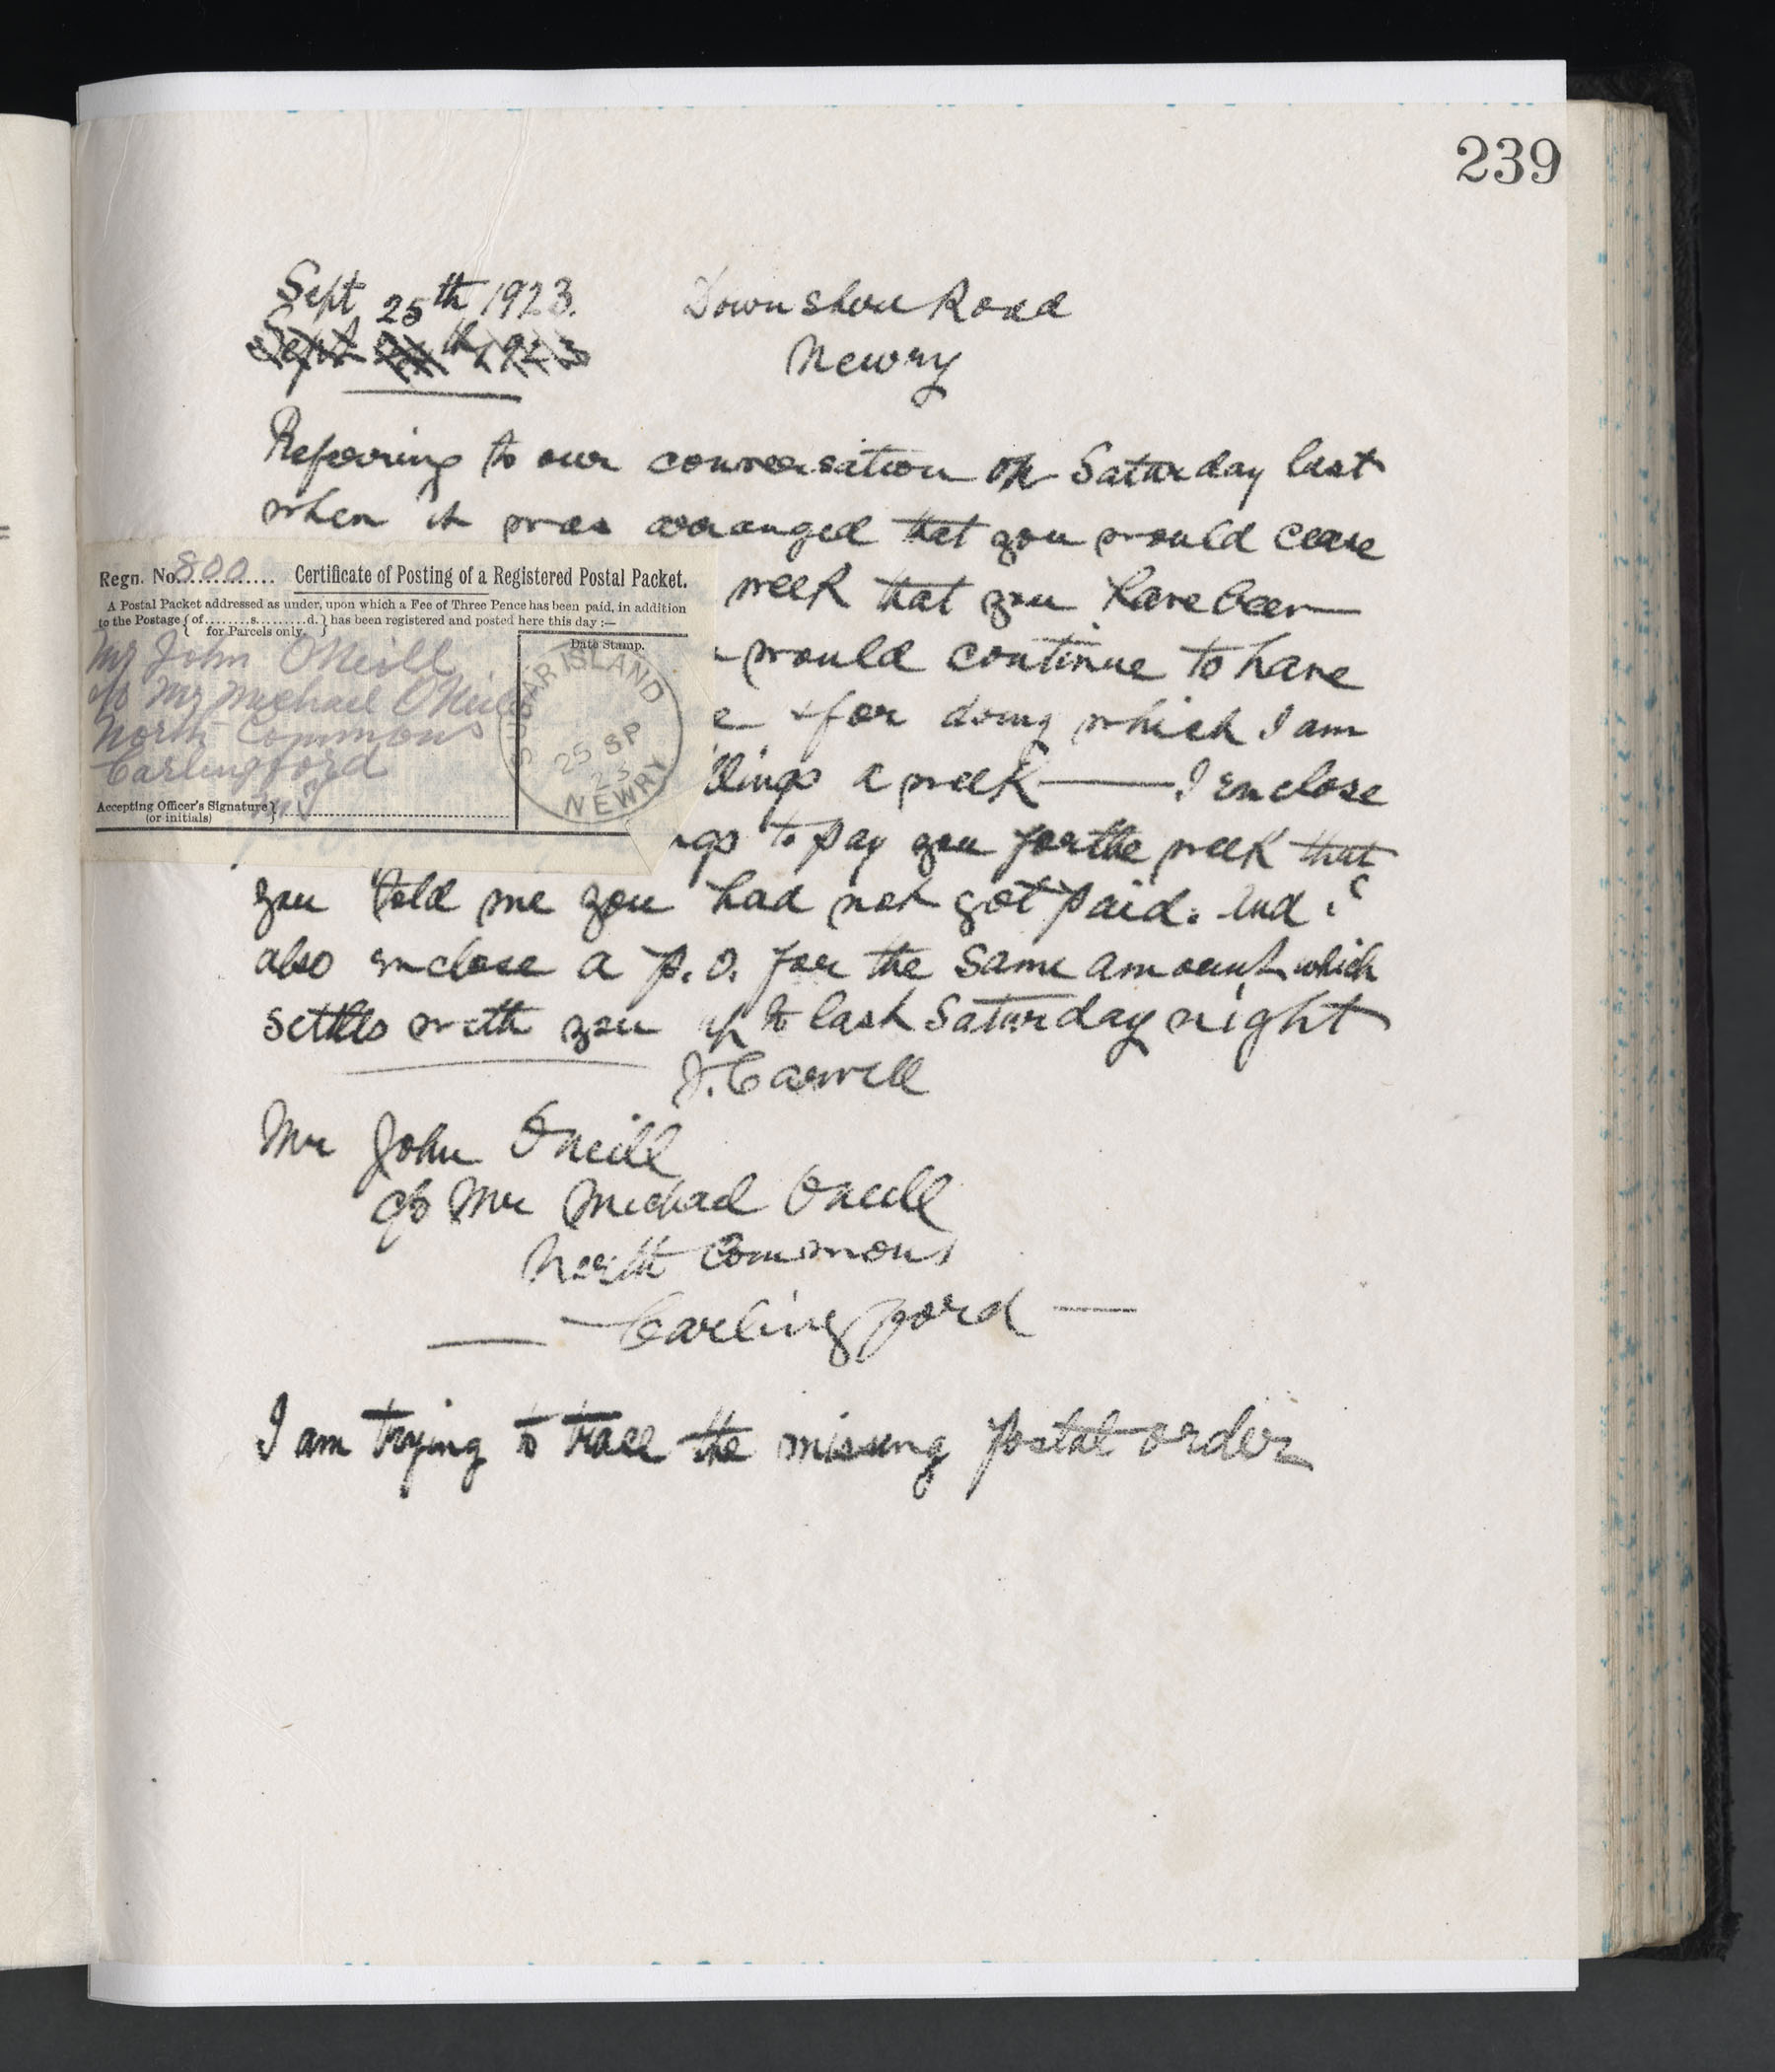 239
Sept 25th 1923. Downshire Road
Sept th 1923 Newry
Referring to our conversation on Saturday last
when it was arranged that you would cease
week that you have been
would continue to have
e & for doing which I am
llings a week — I enclose
ngs to pay you for the week that
you told me you had not got paid. And I
also enclose a P.O. for the same amount which
settles with you up to last Saturday night
J. Carvill
Mr John O'Neill
c/o Mr Michael O'Neill
North Commons
— Carlingford —
I am trying to trace the missing postal order
Regn. No. 800 Certificate of Posting of a Registered Postal Packet.
A Postal Packet addressed as under, upon which a Fee of Three Pence has been paid, in addition
to the Postage { of........s.........d. } has been registered and posted here this day :—
for Parcels only.
Date Stamp.
Mr John O'Neill
c/o Mr Michael O'Neill
North Commons
Carlingford
Accepting Officer's Signature }
(or initials)
SUGAR ISLAND
25 SP
23
NEWRY